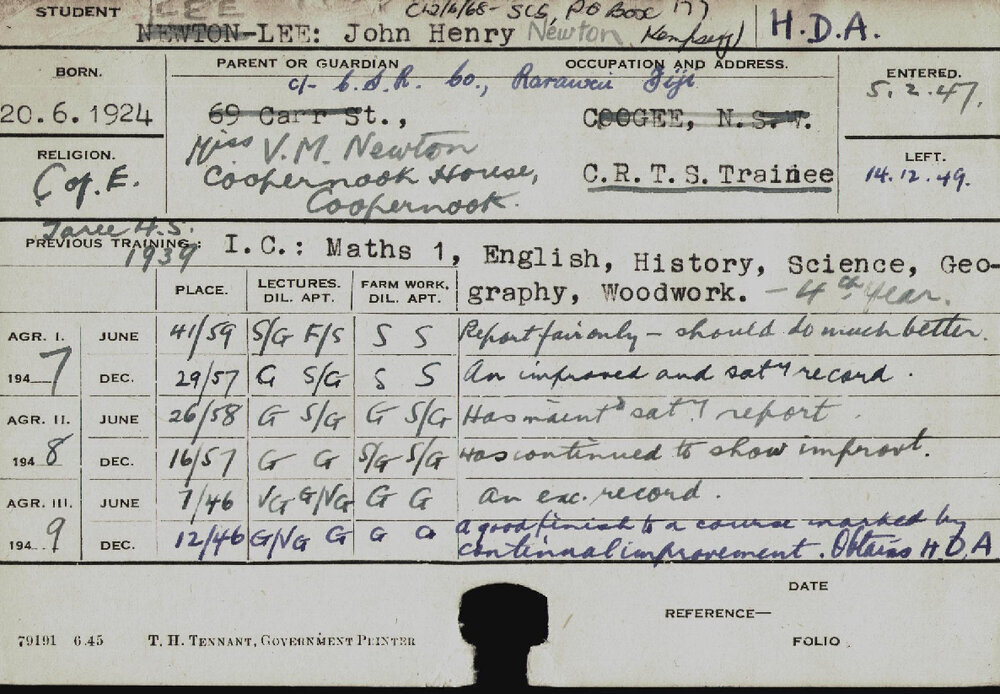 STUDENT LEE C/12/6/68- SCS, PO Box 177
NEWTON-LEE: John Henry Newton Kempsey H.D.A.
BORN. PARENT OR GUARDIAN OCCUPATION AND ADDRESS. ENTERED.
c/- C.S.R. Co., Rarawai Fiji 5.2.47.
20.6.1924 69 Carr St., COOGEE, N.S.W.
RELIGION. Miss V.M. Newton LEFT.
C of. E. Coopernook House, C.R.T.S. Trainee 14.12.49.
Coopernook.
Taree H.S.
PREVIOUS TRAINING: I.C.: Maths 1, English, History, Science, Geo-
1939
graphy, Woodwork. - 4th year.
PLACE. LECTURES. DIL. APT. FARM WORK, DIL. APT.
AGR. I. JUNE 41/59 S/G F/S S S Report fair only - should do much better.
1947 DEC. 29/57 G S/G S S An improved and saty record.
AGR. II. JUNE 26/58 G S/G G S/G Has maintd saty report.
1948 DEC. 16/57 G G S/G S/G Has continued to show improvt.
AGR. III. JUNE 7/46 VG G/VG G G An exc. record.
1949 DEC. 12/46 G/VG G G G A good finish to a course marked by
continual improvement. Obtains H D A
DATE
REFERENCE—
79191 6.45 T. H. TENNANT, GOVERNMENT PRINTER FOLIO